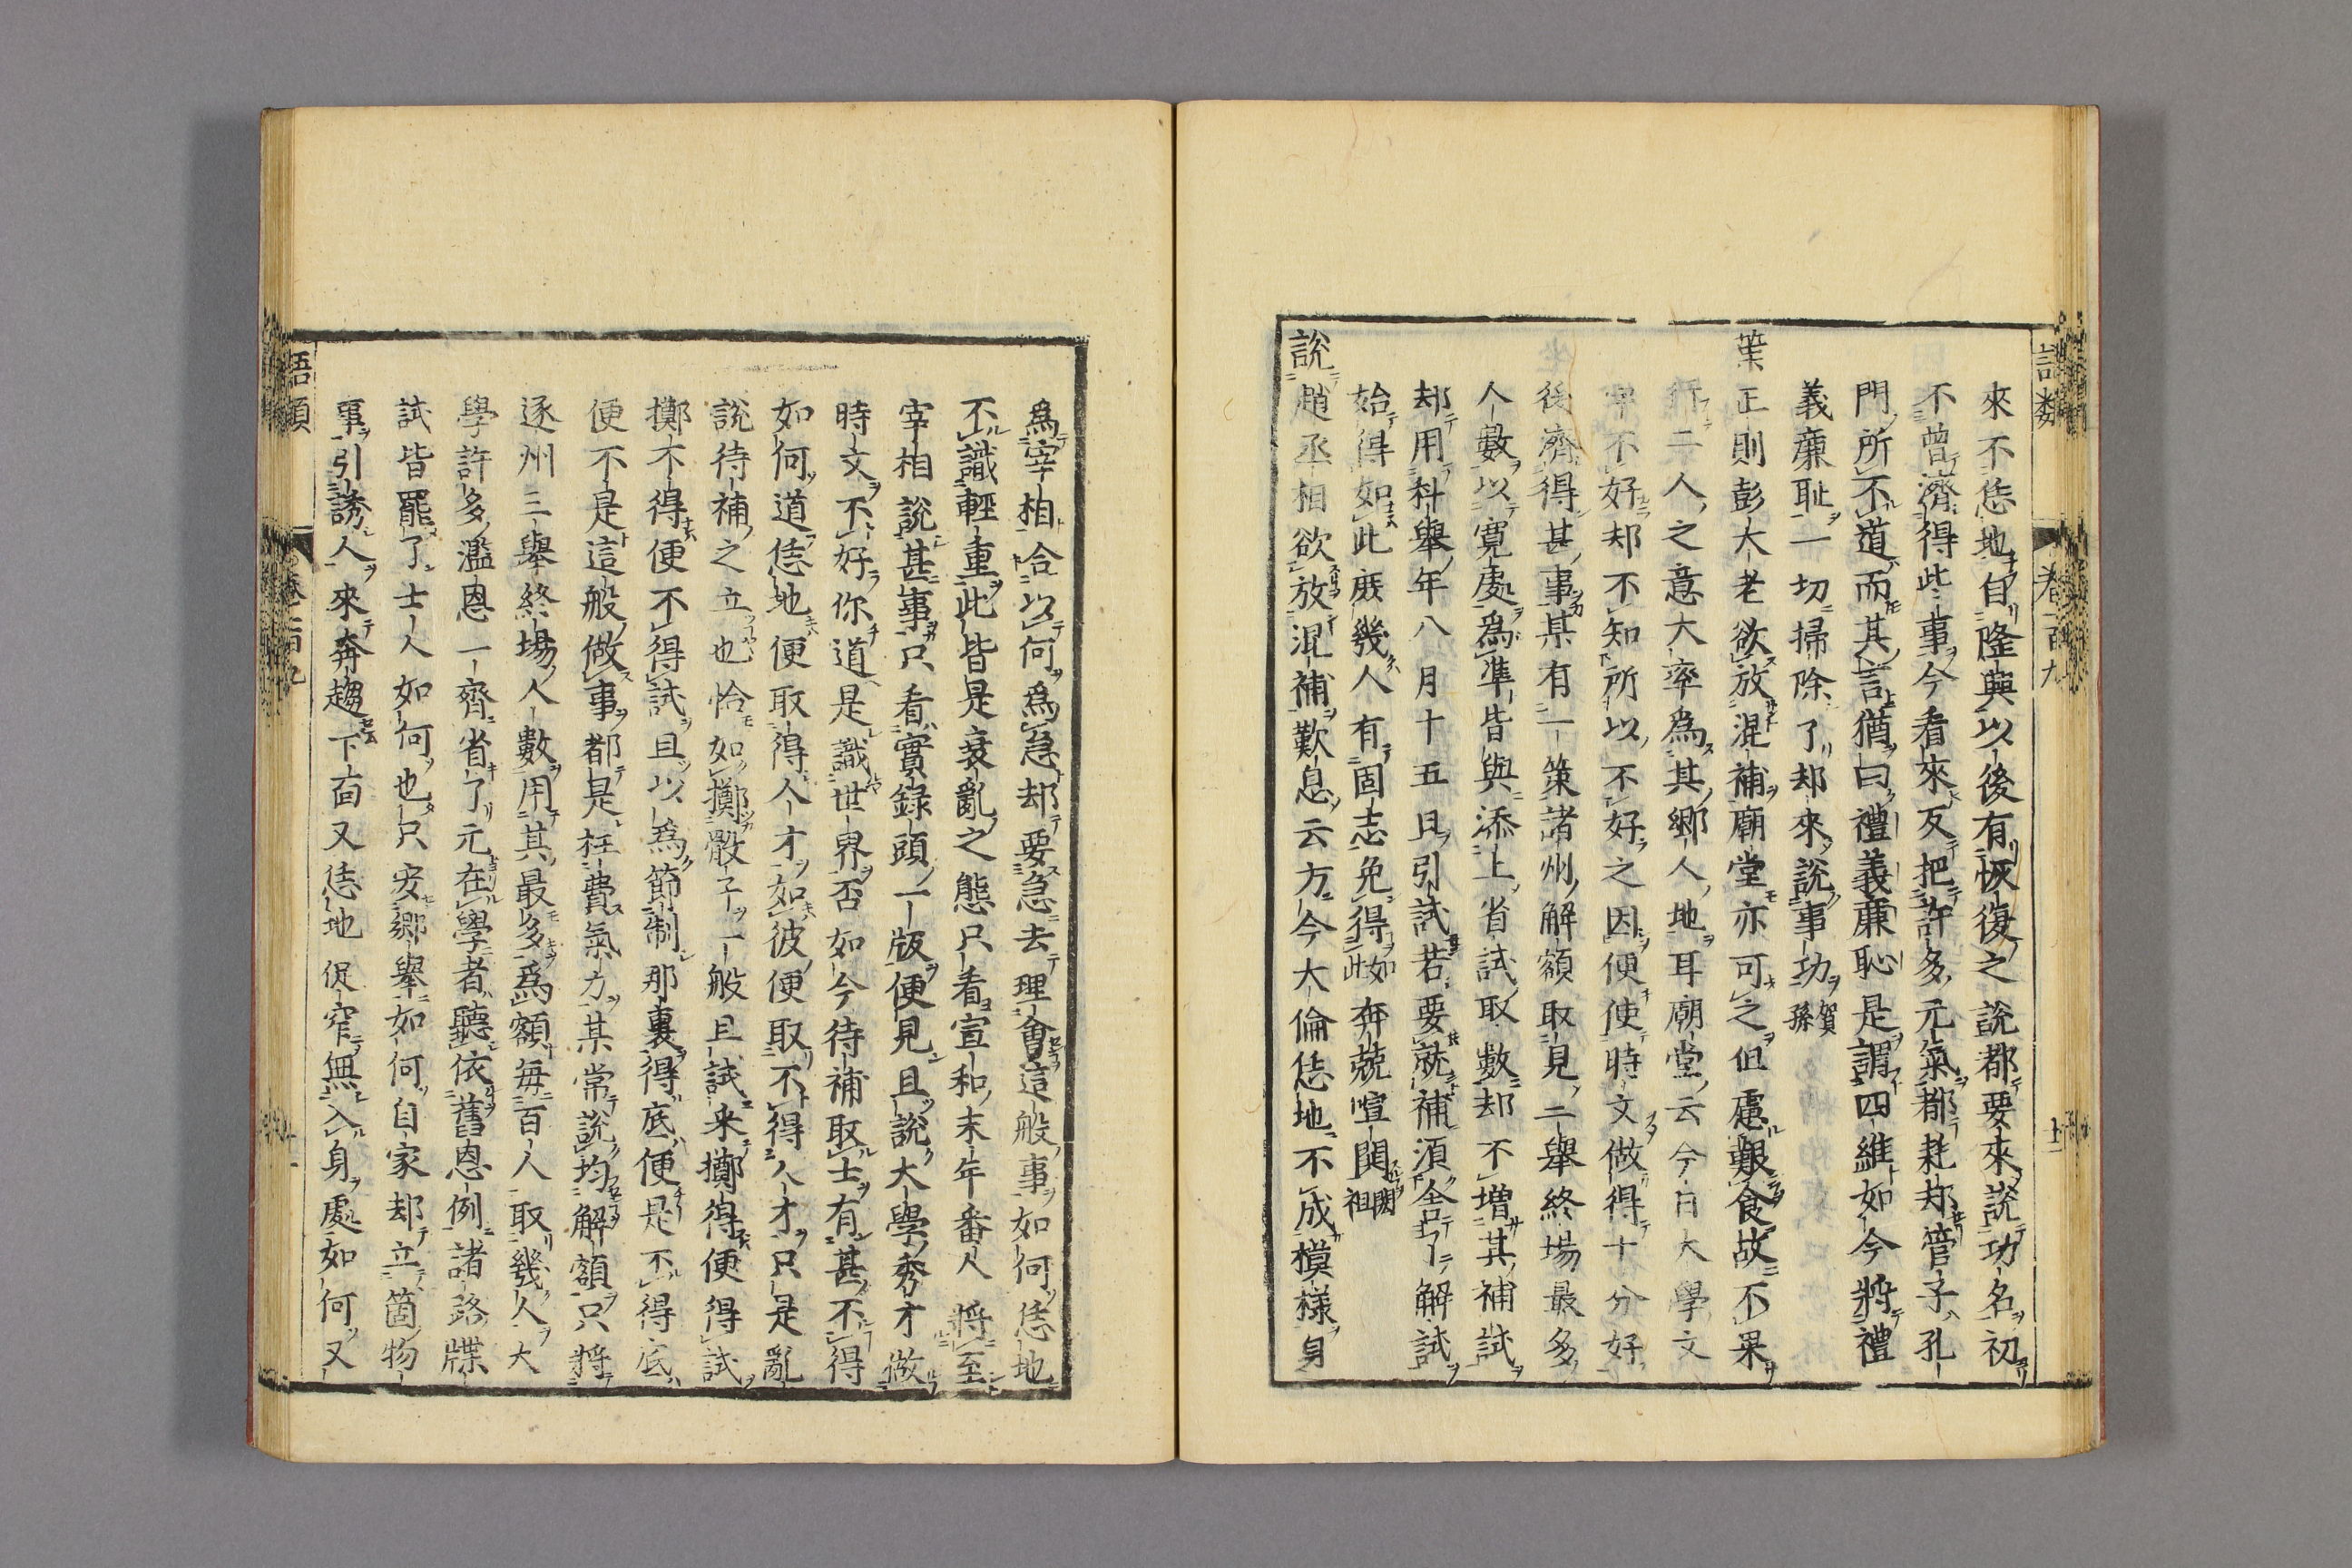 語類 卷一百九 十一
來不恁地自隆興以後有恢復之說都要來說功名初
不曾濟得此事今看來反把許多元氣都耗却管子孔
門所不道而其言猶曰禮義廉恥是謂四維如今將禮
義廉耻一切掃除了却來說事功賀孫
葉正則彭大老欲放混補廟堂亦可之但慮艱食故不果
行二人之意大率為其鄉人地耳廟堂云今日大學文
字不好却不知所以不好之因便使時文做得十分好
後濟得甚事某有一策諸州解額取見二舉終場最多
人數以寛處為準皆與添上省試取數却不增其補試
却用科舉年八月十五日引試若要就補須舍了解試
始得如此庶幾人有固志免得如此奔競喧鬨閎祖
說趙丞相欲放混補歎息云方今大倫恁地不成模樣身
為宰相合以何為急却要急去理會這般事如何恁地
不識輕重此皆是衰亂之態只看宣和末年番人將至
宰相說甚事只看實録頭一版便見且說大學秀才做
時文不好你道是識世界否如今待補取士有甚不得
如何道恁地便取得人才如彼便取不得人才只是亂
說待補之立也恰如擲骰子一般且試来擲得便得試
擲不得便不得試且以為節制那裏得底便是不得底
便不是這般做事都是枉費氣力某常說均解額只將
逐州三舉終場人數用其最多為額每百人取幾人大
學許多濫恩一齊省了元在學者聽依舊恩例諸路牒
試皆罷了士人如何也只安鄉舉如何自家却立箇物
事引誘人來奔趨下面又恁地促窄無入身處如何又
語類 卷一百九